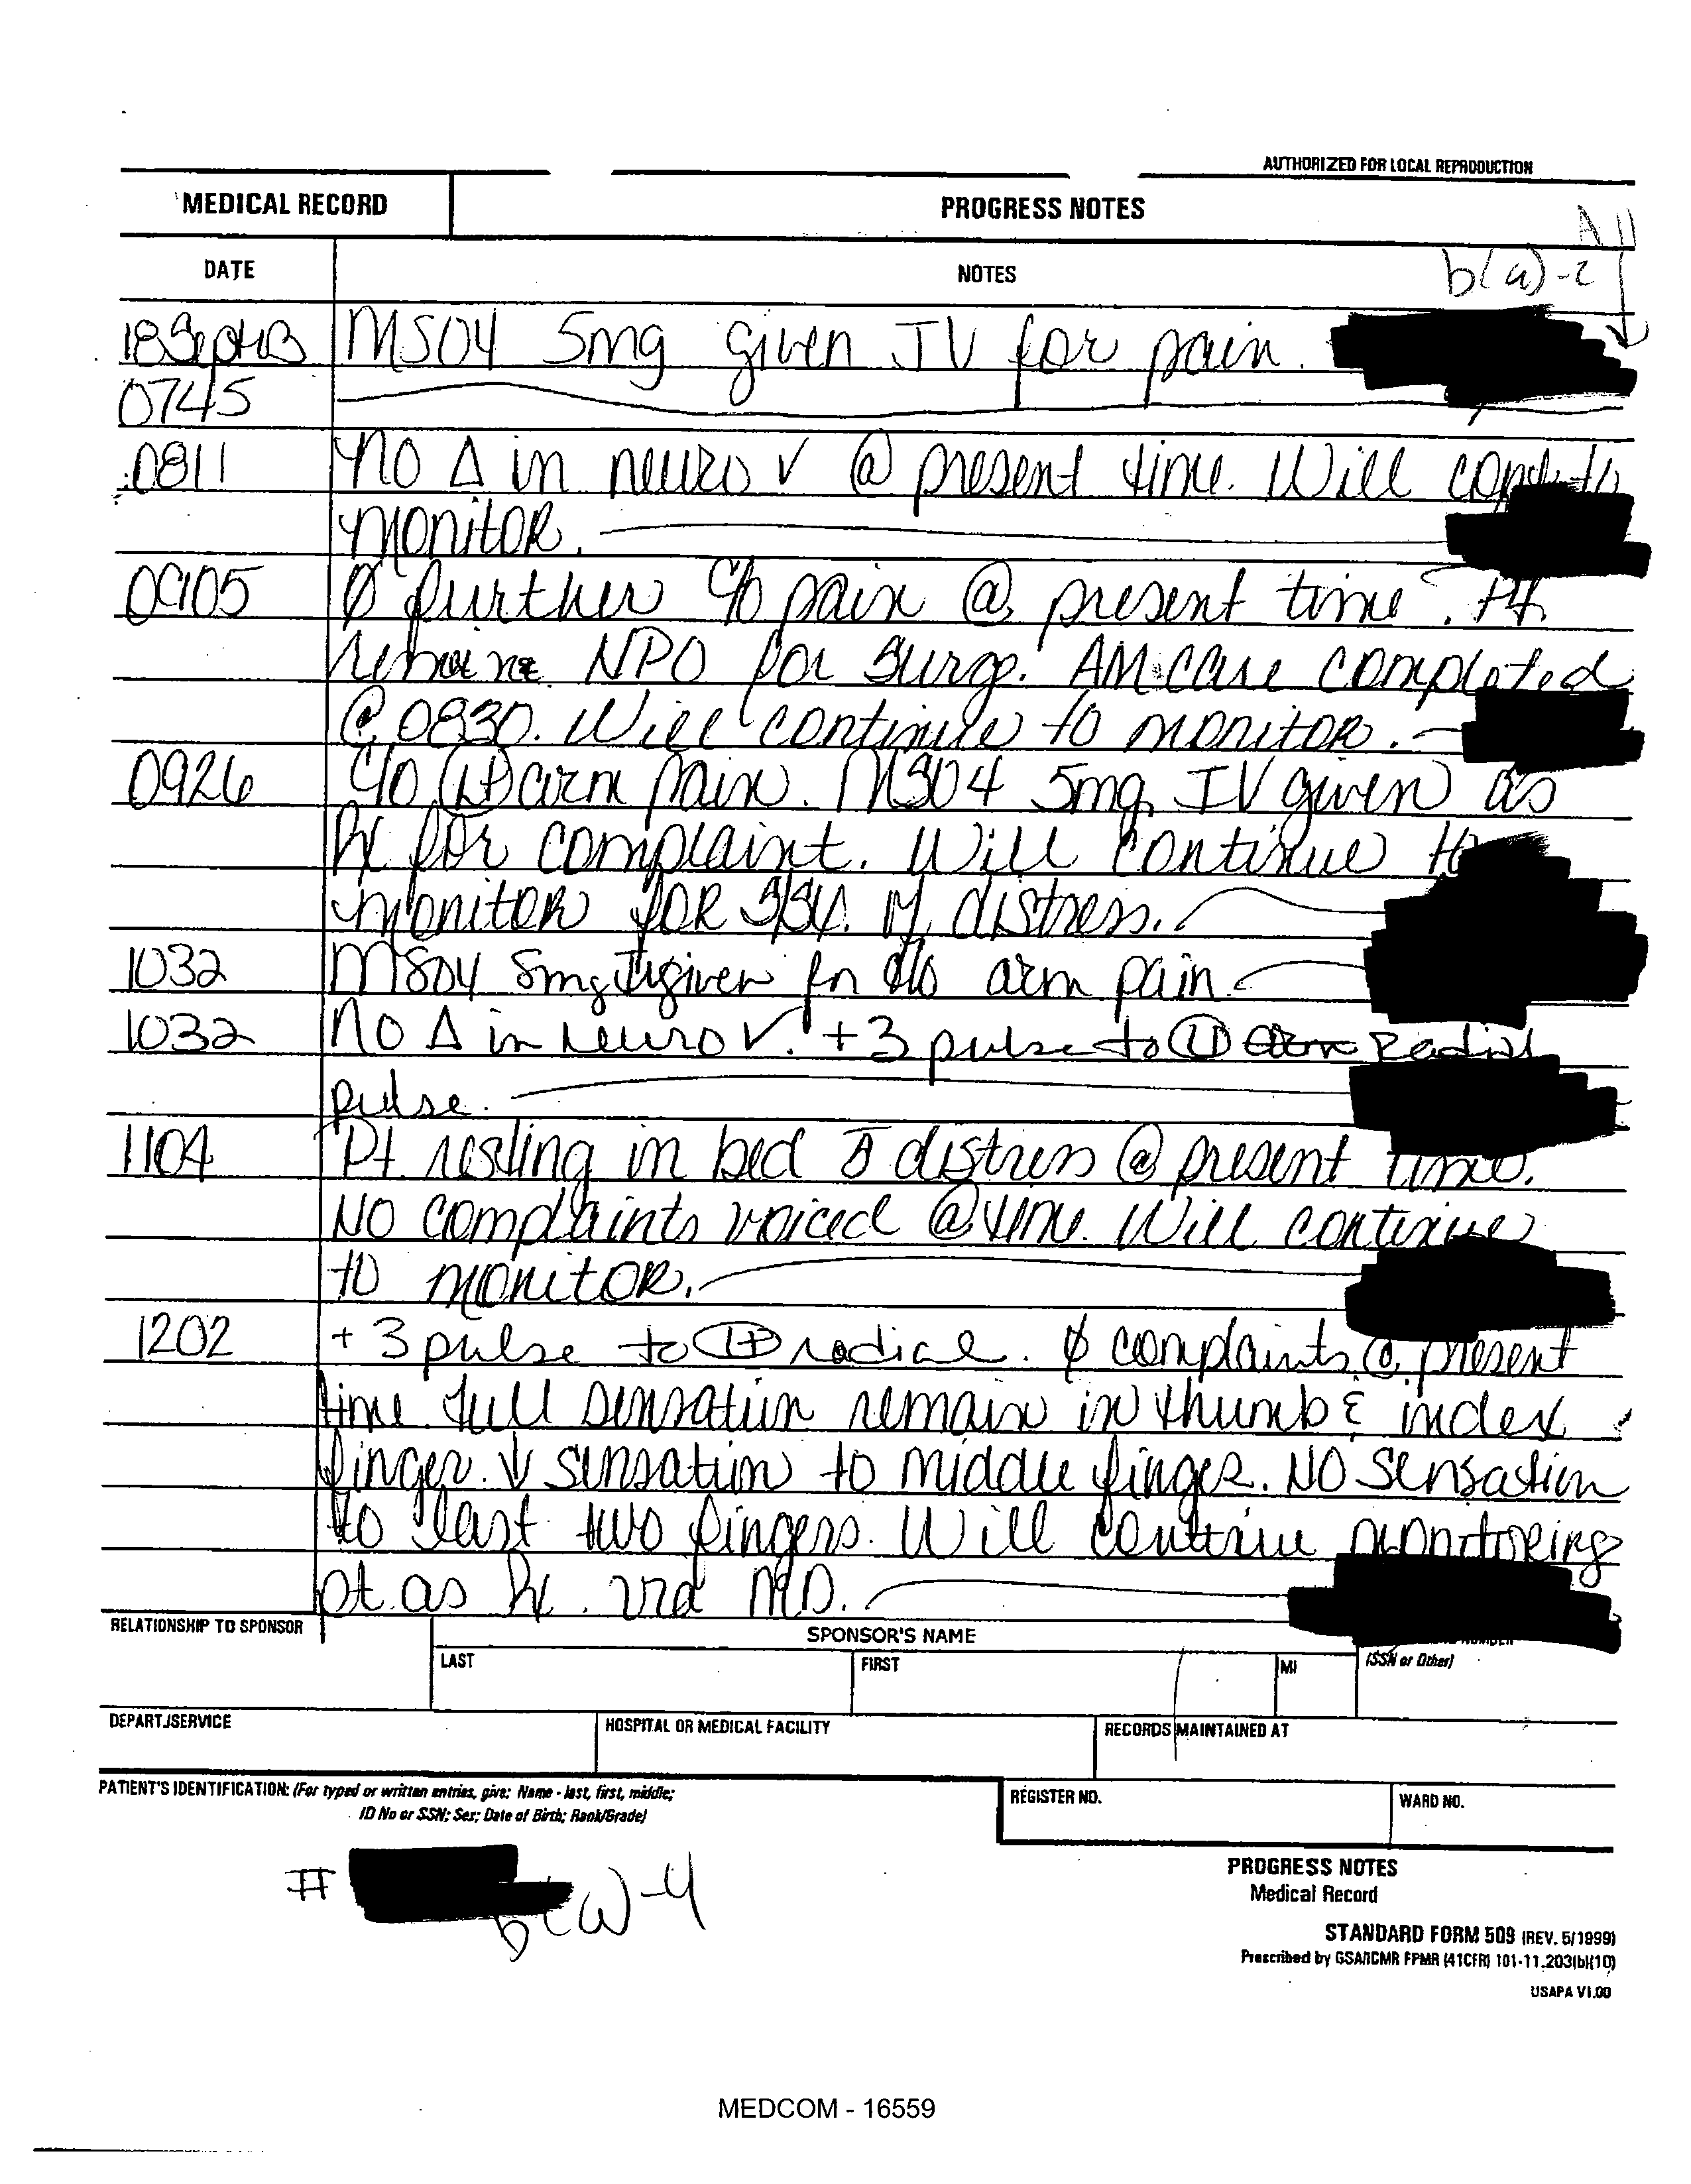 AUTHORIZED FOR LOCAL REPRODUCTION
MEDICAL RECORD
PROGRESS NOTES
All
DATE
NOTES
b(6)-2
18 Sept 03 MSO4 5mg given IV for pain.
0745
0811 No Δ in neuro ✓ @ present time. Will cont to
monitor.
0905 Ø further c/o pain @ present time. Pt.
remains NPO for surg. AM care completed
@ 0830. Will continue to monitor.
0926 c/o (L) arm pain. MSO4 5mg IV given as
Rx for complaint. Will continue to
monitor for s/sx. of distress.
1032 MSO4 5mg IV given for c/o arm pain
1032 No Δ in neuro ✓. +3 pulse to (L) arm radial
pulse.
1104 Pt. resting in bed distress @ present time.
No complaints voiced @ time. Will continue
to monitor.
1202 +3 pulse to (L) radial. Ø complaints @ present
time. Full sensation remain in thumb & index
finger. ↓ sensation to middle finger. No sensation
to last two fingers. Will continue monitoring
pt. as Rx. MD.
RELATIONSHIP TO SPONSOR
SPONSOR'S NAME
LAST
FIRST
MI
(SSN or Other)
DEPART./SERVICE
HOSPITAL OR MEDICAL FACILITY
RECORDS MAINTAINED AT
PATIENT'S IDENTIFICATION: (For typed or written entries, give: Name - last, first, middle;
ID No or SSN; Sex; Date of Birth; Rank/Grade)
REGISTER NO.
WARD NO.
#
b(6)-4
PROGRESS NOTES
Medical Record
STANDARD FORM 509 (REV. 5/1999)
Prescribed by GSA/ICMR FPMR (41CFR) 101-11.203(b)(10)
USAPA V1.00
MEDCOM - 16559